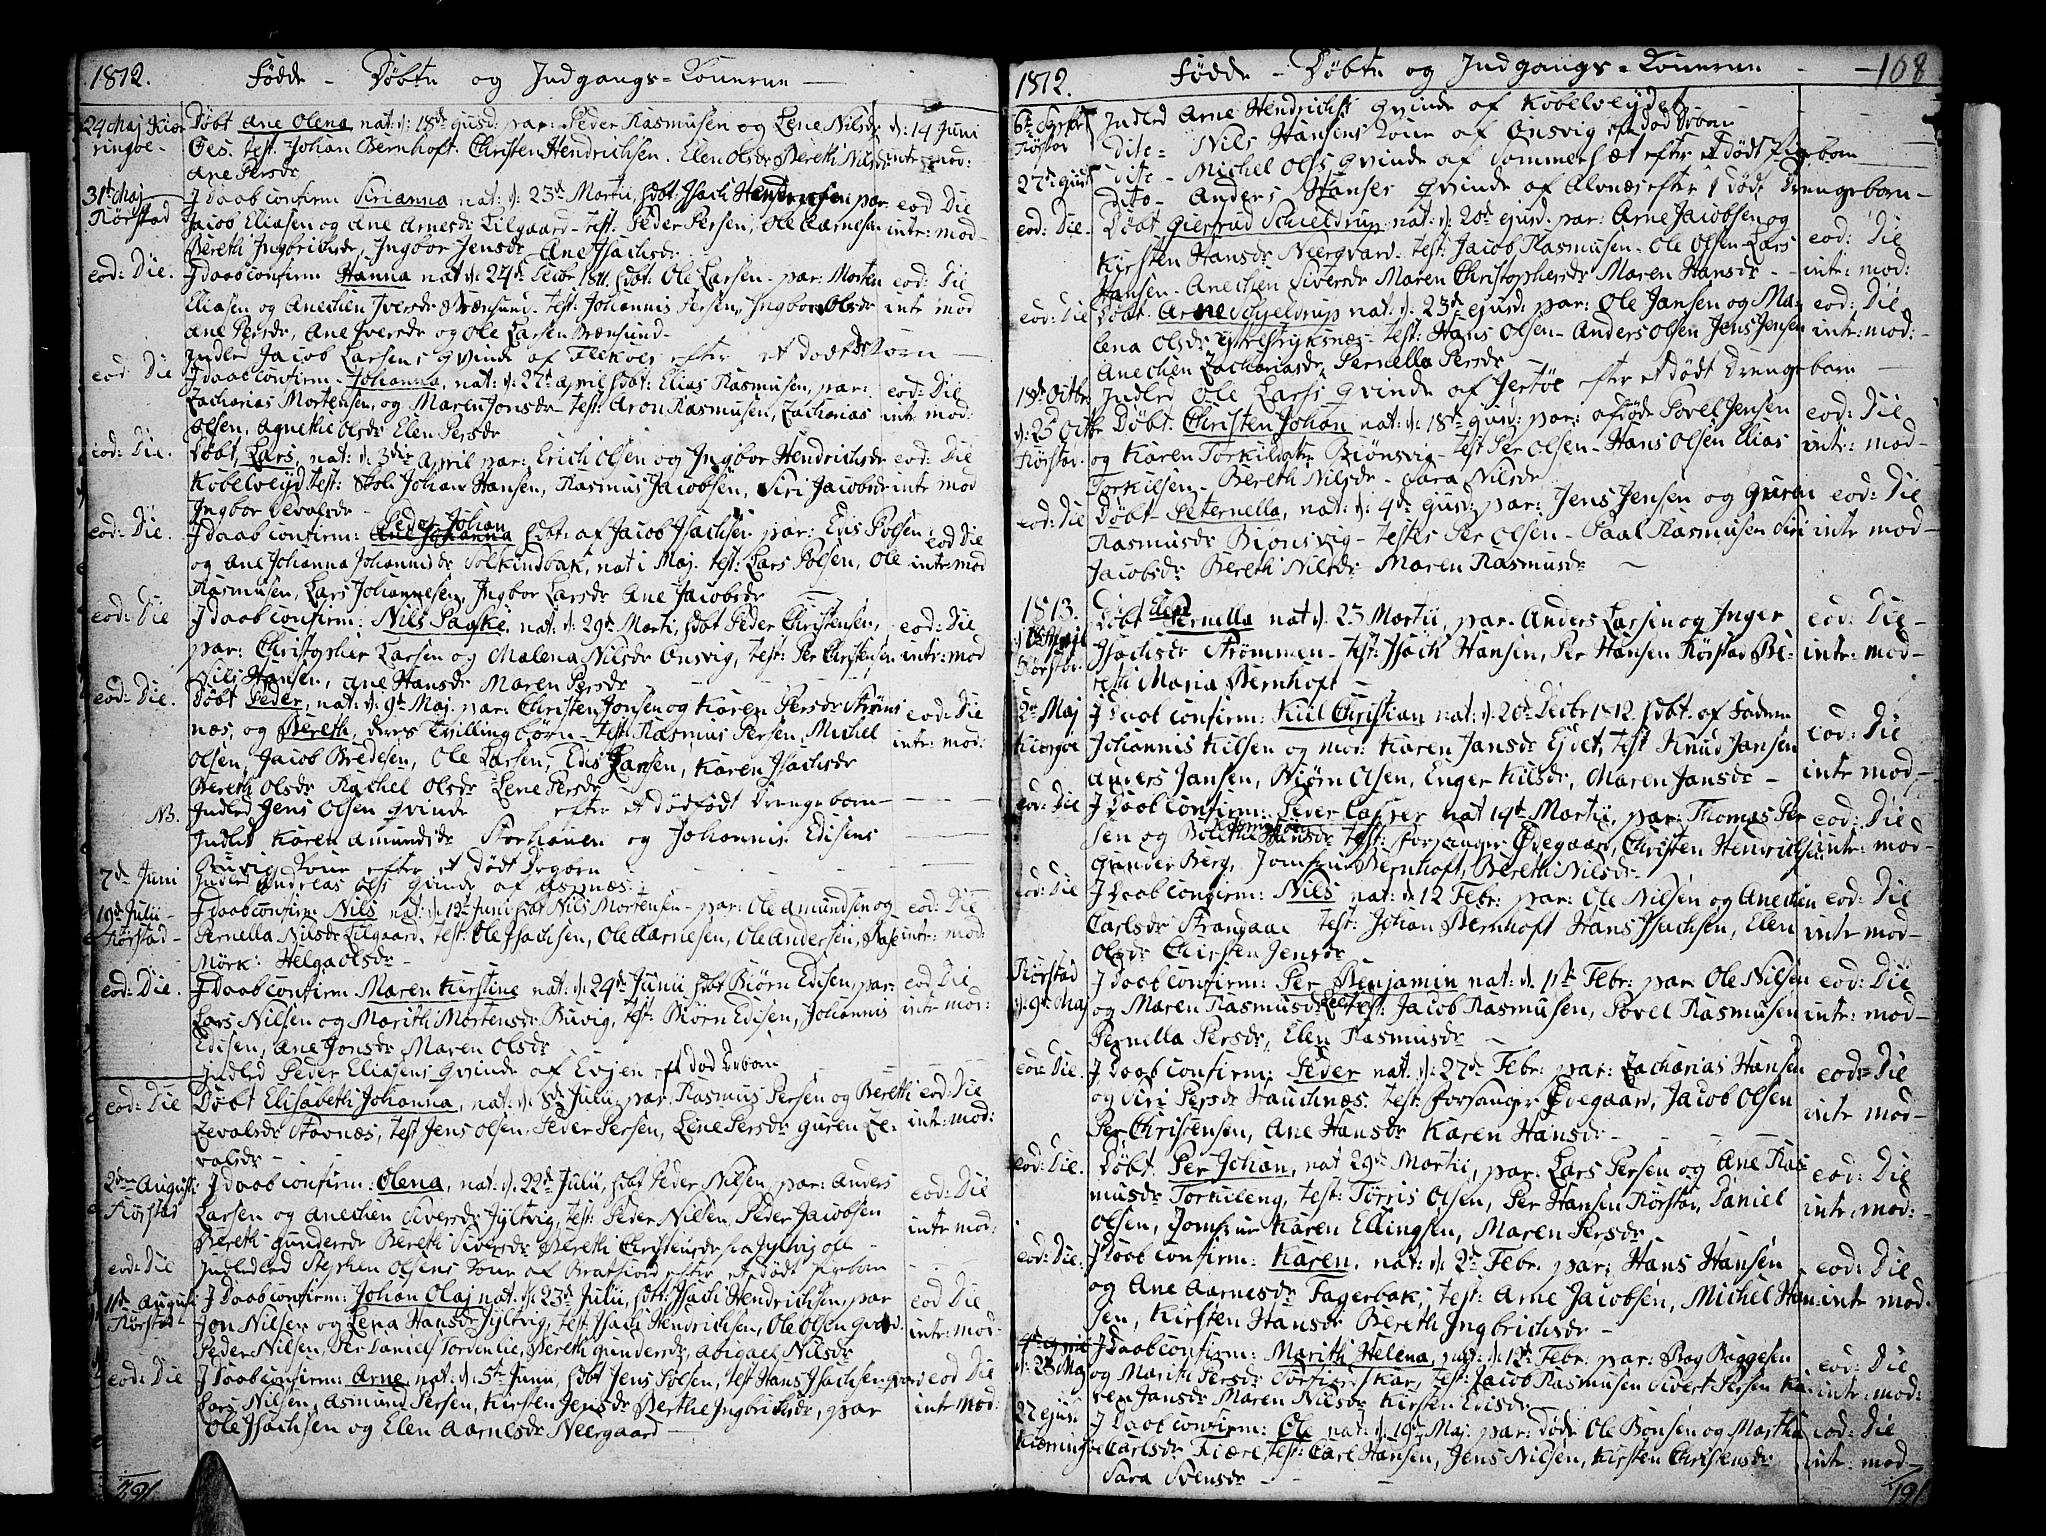 1812. Fødde - Døbte og Indgangs-Konerne -
24 Maj Kier Døbt Ane Olena nat: d: 18de ejusd: par: Peder Rasmusen og Lene Nilsdr d: 14 Juni
ringøe - Øes. test: Johan Bernhoft. Christen Hendrichsen. Elen Olsdr Bereth Nilsdr intr: mod:
Ane Persdr
31te Maj I daab confirm Sirianna nat: d: 23de Martii, hdbt Isach Hendrichsen par: eod Die
Rørstad Jacob Eliasen og Ane Arnesdr Lilgaard - test: Peder Persen, Ole Aarnesen intr: mod -
Bereth Ingbrichsdr, Ingbor Jensdr Ane Isachsdr
eod: Die. I daab confirm Hanna nat d: 24de 1811. hdbt: Ole Larsen - par: Morten eod: Die
Eliasen og Anechen Iversdr Brænsund. test: Johannis Persen, Ingbor Olsdr intr mod
Ane Persdr, Ane Iversdr og Ole Larsen Brænsund -
Indled Jacob Larsens Qvinde af efter et dødt -
eod: Die I daab confirm - Johanna, nat: d: 27de April hdbt: Elias Rasmusen, par: eod: Die
Zacharias Mortensen, og Maren Jonsdr - test: Aron Rasmusen, Zacharias intr mod:
Olsen, Agnethe Olsdr Elen Persdr
eod: Die. Døbt, Lars, nat: d: 3die April par: Erich Olsen og Ingbor Hendrichsdr eod: Die
Kobelveyd test: Johan Hansen, Rasmus Jacobsen, Siri Jacobsdr intr mod
Ingbor Zevalsdr -
Peder Johan
eod: Die. I daab confirm: Ane Johanna hdbt: af Jacob Isachsen par: Edis Polsen eod Die
og Ane Johanna Johannisdr Solkindbak, nat i Maj. test: Lars Polsen, Ole intr: mod
Rasmusen, Lars Johannesen, Ingbor Larsdr Ane Jacobsdr
eod: Die I daab confirm: Nils nat: d: 29de Marti, hdbt Peder Christensen, eod: Die
par: Christopher Larsen og Malena Nilsdr Ønsvig, test: Per Christensen intr: mod
Nils Hansen, Ane Hansdr Maren Persdr -
eod: Die. Døbt Peder, nat: d: 9de Maj. par: Christen Jonsen og Karen Persdr Strøms eod: Die
næs, og Bereth, deres Tvillingbørn - test: Rasmus Persen, Michel intr: mod:
Olsen, Jacob Bredesen, Ole Larsen, Edis Larsen, Karen Isachsdr
Bereth Olsdr Rachel Olsdr Lene Persdr
NB. Indled Jens Olsen Qvinde efter et dødfødt Drengeborn -
Indled Karen Amundsdr Storhauen og Johannis Edisens
Buvig Kone efter et dødt
7de Juni Indled Andreas Ols Qvinde af Aspnæs -
19de Julii - I daab confirm Nils nat: d: 12te Juni hdbt Nils Mortensen - par: Ole Amundsen og eod: Die
Rørstad - Pernella Nilsdr Lilgaard, test: Ole Isachsen, Ole Aarnesen, Ole Andersen, intr: mod:
Mørk: Helga Olsdr -
eod: Die. I daab confirm Maren Kirstine nat: d: 24de Junii hdbt Biørn Edisen, par: eod Die
Lars Nilsen og Marith Mortensdr Buvig, test: Biørn Edisen, Johannis intr mod:
Edisen, Ane Jonsdr Maren Olsdr
Indled Peder Eliasens Qvinde af Evjen
eod: Die Døbt Elisabeth Johanna, nat: d: 8de Julii par: Rasmus Persen og Bereth eod: Die
Zevalsdr Stavnæs, test Jens Olsen, Peder Persen, Lene Persdr Guren Ze- intr: mod:
valsdr -
2den Augusti I daab confirm: Olena, nat: d: 22de Julii, hdbt Peder Nilsen, par: Anders eod: Die
Rørstad Larsen og Anechen Siversdr Jyltvig, test: Peder Nilsen, Peder Jacobsen intr mod:
Bereth Gundersdr Bereth Siversdr Bereth Christensdr fra Jyltvig
eod: Die Indled Stephen Olsens Kone af Bratfiord efter et dødt
11te Augusti I daab confirm: Johan Olaj nat: d: 23de Julii, hdbt: Isach Hendrichsen, par eod Die
Rørstad - Jon Nilsen og Lena Hansdr Jyltvig, test Isach Hendrichsen, Ole Olsen intr: mod -
Peder Nilsen, Per Daniel Tordenlie, Bereth Gundersdr, Abigael Nilsdr
eod: Die I daab confirm: Arne nat: d: 5te Junii, hdbt Jens Polsen, test Hans Isachsen, eod Die
Lars Nilsen, Asmund Persen, Kirsten Jensdr Berthe Ingbrichsdr, par intr Mod:
Ole Isachsen og Elen Aarnesdr Neergaard -
191

1812. Fødde - Døbte og Indgangs-Konerne - 108
6te Septbr Indled Arne Hendrichs Qvinde af Kobelveydet -
Rørstad Dito - Nils Hansens Kone af Ønsvig
27de ejusd dito - Michel Ols Qvinde af Sommerset efter et dødt Pigeborn
dito - Anders Hanses Qvinde af Alvnæs efter 1 dødt Drengeborn -
eod: Die - Døbt Giertrud Schieldrup nat: d: 20de ejusd. par: Arne Jacobsen og eod: Die
Kirsten Hansdr Neergaard - test: Jacob Rasmusen - Ole Olsen Lars intr: mod:
Hansen - Anechen Siversdr Maren Christophersdr Maren Hansdr -
eod: Die Døbt Arne Schjeldrup nat: d: 23de ejusd: par: Ole Jansen og Ma- eod: Die
lena Olsdr test: Hans Olsen - Anders Olsen Jens Jensen intr: mod: -
Anechen Zachariasdr Pernella Persdr -
18de Octbr Indled Ole Lars Qvinde af Jertøe efter et dødt Drengeborn -
d: 25 Octbr Døbt Christen Johan nat: d: 18de ejusd: par: afdøde Povel Jensen eod: Die
Rørstad - og Karen Torkildsdtr Biønsvig - test Per Olsen - Hans Olsen Elias intr: mod -
Torkilsen - Bereth Nilsdr - Sara Nilsdr
eod: Die Døbt Peternella, nat: d: 4de ejusd: par: Jens Jensen og Guren eod: Die
Rasmusdr Biønsvig - testes Per Olsen - Paal Rasmusen Siri intr mod -
Jacobsdr Bereth Nilsdr Maren Rasmusdr -
1813. Døbt Elen Pernella nat d: 23 Martii, par: Anders Larsen og Inger eod: Die -
Rørstad - Isachsdr Strømmen - test: Isach Hansen, Per Hansen Rørstad Be- intr: mod -
reth Maria Bernhoft -
2den Maj I daab confirm: Kiil Christian nat: d: 20de Decbr 1812. hdbt. af Faderen eod: Die
Kieringøe Johannis Kilsen og mod: Karen Jansdr Ejdet, test Knud Jansen intr mod -
Anders Jansen, Biørn Olsen, Enger Kilsdr, Maren Jansdr -
eod: Die I daab confirm: Peder Casper nat 19de Martii, par: Thomas Per eod: Die
sen og Bolethe Hansdr test: Forsanger Ødegaard, Christen Hendrichsen intr: mod -
Gunder Berg, Jomfrue Bernhoft, Bereth Nilsdr -
eod: Die I daab confirm: Nils nat: d: 12 Febr: par: Ole Nilsen og Anechen eod: Die
Carlsdr Strangaae test: Johan Bernhoft Hans Isachsen, Elen intr mod -
Olsdr Chirsten Jensdr
Rørstad I daab confirm: Per Benjamin nat: d. 11te Febr: par: Ole Nilsen eod: Die
d: 9de Maj og Maren Rasmusdr test: Jacob Rasmusen, Povel Rasmusen intr: mod -
Pernella Persdr, Elen Rasmusdr -
eod: Die. I daab confirm: Peder nat: d: 27de Febr: par: Zacharias Hansen eod: Die
og Siri Persdr Hauchnæs. test: Forsanger Ødegaard, Jacob Olsen intr mod -
Per Christensen, Ane Hansdr Karen Hansdr -
eod: Die. Døbt Per Johan, nat 29de Martii, par: Lars Persen og Ane Ras eod: Die
musdr Torkileng, test: Tørris Olsen, Per Hansen Rørstad, Daniel intr: mod: -
Olsen, Jomfrue Karen Ellingsen, Maren Persdr -
eod: Die. I daab confirm: Karen, nat: d: 2de Febr. par: Hans Hansen eod: Die
og Ane Aarnesdr Fagerbak, test: Arne Jacobsen, Michel Han- intr mod.
sen, Kirsten Hansdr Bereth Ingbrichsdr -
I daab confirm: Marith Helena, nat: d: 12te Febr: par: Baggesen eod: Die
d: 23 Maj og Marith Persdr test: Jacob Rasmusen Sivert Persen Ka- intr: mod:
ren Jansdr Maren Nilsdr Kirsten Edisdr
27 ejus: I daab confirm: Ole nat: d: 19de Maj. par: døde Ole Bonsen og Martha eod: Die
Carlsdr Kiære, test: Carl Hansen, Jens Nilsen, Kirsten Christensdr intr: mod -
Sara Svensdr -
191